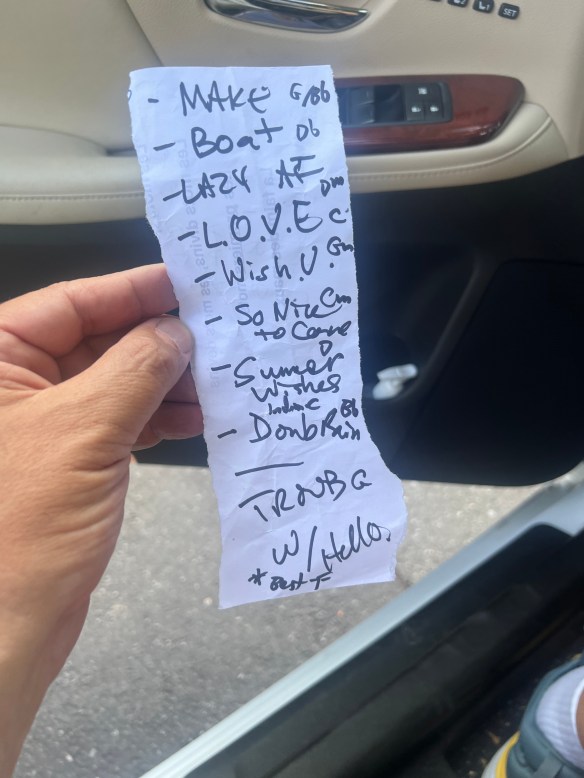 SET
- MAKE G/Bb
- Boat Db
- LAZY AF Dm
- L.O.V.E C-
- Wish. U. Gm
- So Nice Cm
to Come
D
- Sumer
Wishes
- Doubl Rain Bb
TROUB G
W/Hello,
* Best F